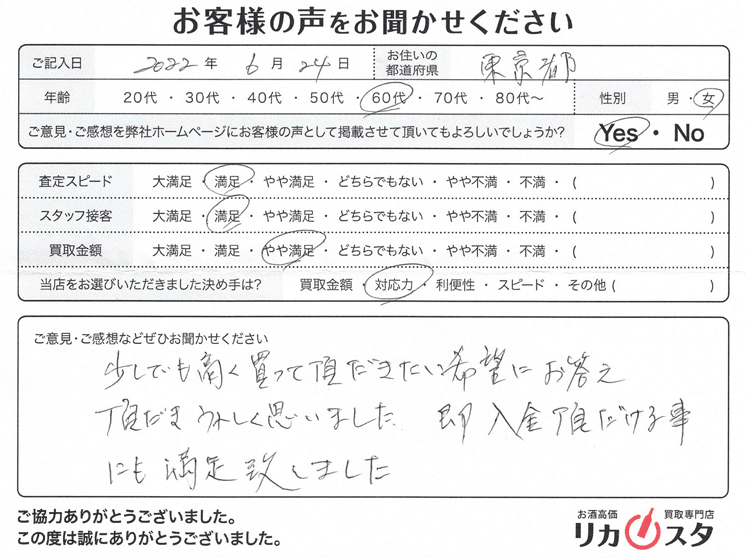 お客様の声をお聞かせください
ご記入日 2022年 6月 24日 お住いの都道府県 東京都
年齢 20代・30代・40代・50代・60代・70代・80代〜 性別 男・女
ご意見・ご感想を弊社ホームページにお客様の声として掲載させて頂いてもよろしいでしょうか? Yes・No
査定スピード 大満足・満足・やや満足・どちらでもない・やや不満・不満・( )
スタッフ接客 大満足・満足・やや満足・どちらでもない・やや不満・不満・( )
買取金額 大満足・満足・やや満足・どちらでもない・やや不満・不満・( )
当店をお選びいただきました決め手は? 買取金額・対応力・利便性・スピード・その他( )
ご意見・ご感想などぜひお聞かせください
少しでも高く買って頂だきたい希望にお答え
頂だき うれしく思いました 即入金頂だける事
にも満足致しました
ご協力ありがとうございました。
この度は誠にありがとうございました。
お酒高価 買取専門店
リカスタ